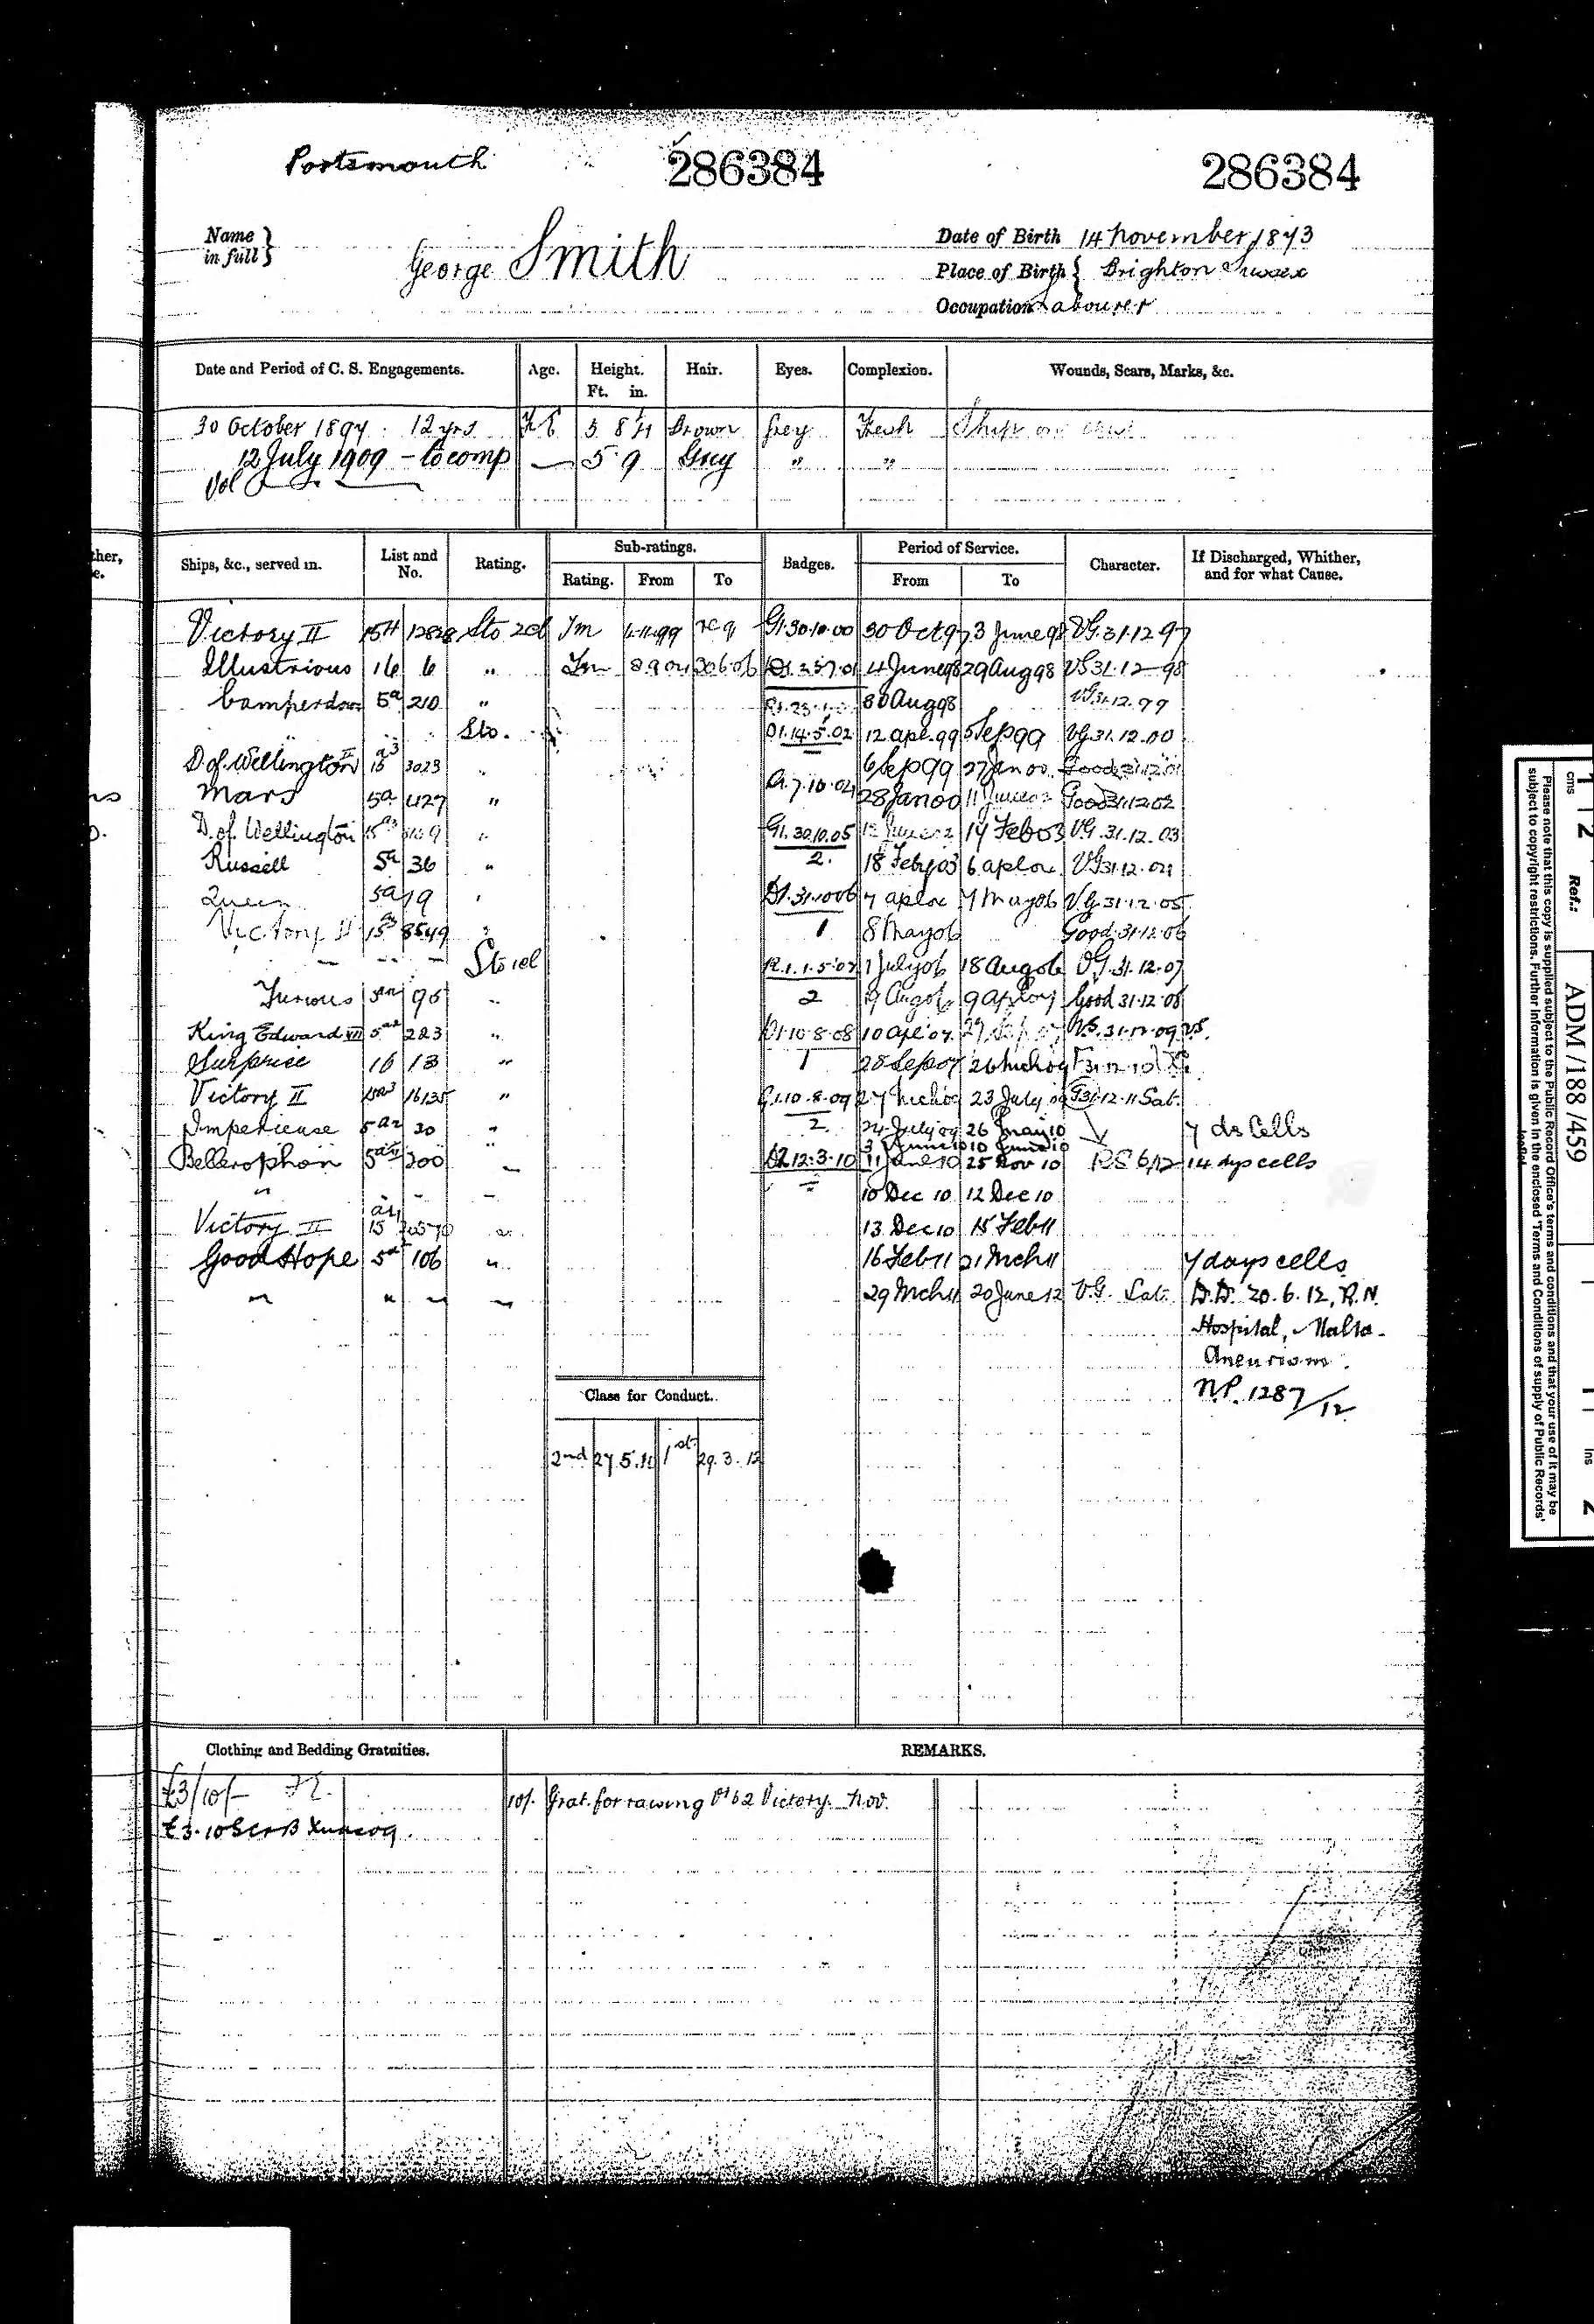 Portsmouth 286384 286384
Name in full } George Smith
Date of Birth 14 November 1873
Place of Birth { Brighton Sussex
Occupation Labourer
Date and Period of C. S. Engagements. Age. Height. Ft. in. Hair. Eyes. Complexion. Wounds, Scars, Marks, &c.
30 October 1897 . 12 yrs 5 8 Brown Grey Fresh Ship on
12 July 1909 - to comp — 5 9 Grey " "
Vol
ther,
e.
Ships, &c., served in. List and No. Rating. Sub-ratings. Rating. From To Badges. Period of Service. From To Character. If Discharged, Whither, and for what Cause.
Victory II 15A 12828 Sto 2cl Tm G1.30.10.00 30 Oct 97 3 June 98 VG.31.12 97
Illustrious 16 6 " Tm 8 9 04 30 6 06 4 June 98 29 Aug 98 VG 31.12-98
Camperdown 5a 210 " 30 Aug 98 VG.31.12.99
Sto. D1.14.5.02 12 Apl. 99 5 Sep 99 VG.31.12.00
D of Wellington II 15 a3 3023 " 6 Sep 99 27 Jan 00 Good 31.12.01
Mars 5a 427 " 28 Jan 00 11 June 02 Good 31.12.02
D. of Wellington 15a3 G1.30.10.05 12 June 02 17 Feb 03 VG.31.12.03
Russell 5a 36 " 2. 18 Feby 03 6 Apl 04 VG 31.12.04
Queen 5a 19 D1.31.10 06 7 Apl 04 7 May 06 V.G.31.12.05
Victory II 15a3 8549 " 1 8 May 06 Good 31.12.06
Sto 1cl R.1.1.5.07 1 July 06 18 Aug 06 VG.31.12.07
Furious 95 " 2 19 Aug 06 9 Apl 07 Good 31.12.08
King Edward VII 5a2 223 " D1.10.8.08 10 Apl 07 27 Sep 07 VG.31.12.09
Surprise 16 13 " 1 28 Sep 07 26 Mch 09
Victory II 15a3 16135 " G1.10.8.09 27 Mch 09 23 July 09 31.12.11 Sat.
Imperieuse 5a2 30 " 2. 24 July 09 26 May 10 7 ds Cells
3 June 10 10 June 10
Bellerophon 200 " D2 12.3.10 11 June 10 25 Nov 10 14 dys cells
" - - 10 Dec 10 12 Dec 10
Victory II 15 13 Dec 10 15 Feb 11
Good Hope 5a 106 " 16 Feb 11 21 Mch 11 7 days cells
" " 29 Mch 11 20 June 12 V.G. Sat. D.D. 20.6.12, R.N.
Hospital, Malta.
Aneurism.
N.P. 1287/12
Class for Conduct.
2nd 27.5.11 1st 29.3.12
Clothing and Bedding Gratuities. REMARKS.
£3/10/- 10/. Grat. for raising Victory. Nov.
£3.10
cms 1 2 Ref.: ADM / 188 / 459 1 Ins 2
Please note that this copy is supplied subject to the Public Record Office's terms and conditions and that your use of it may be
subject to copyright restrictions. Further information is given in the enclosed 'Terms and Conditions of supply of Public Records'
leaflet